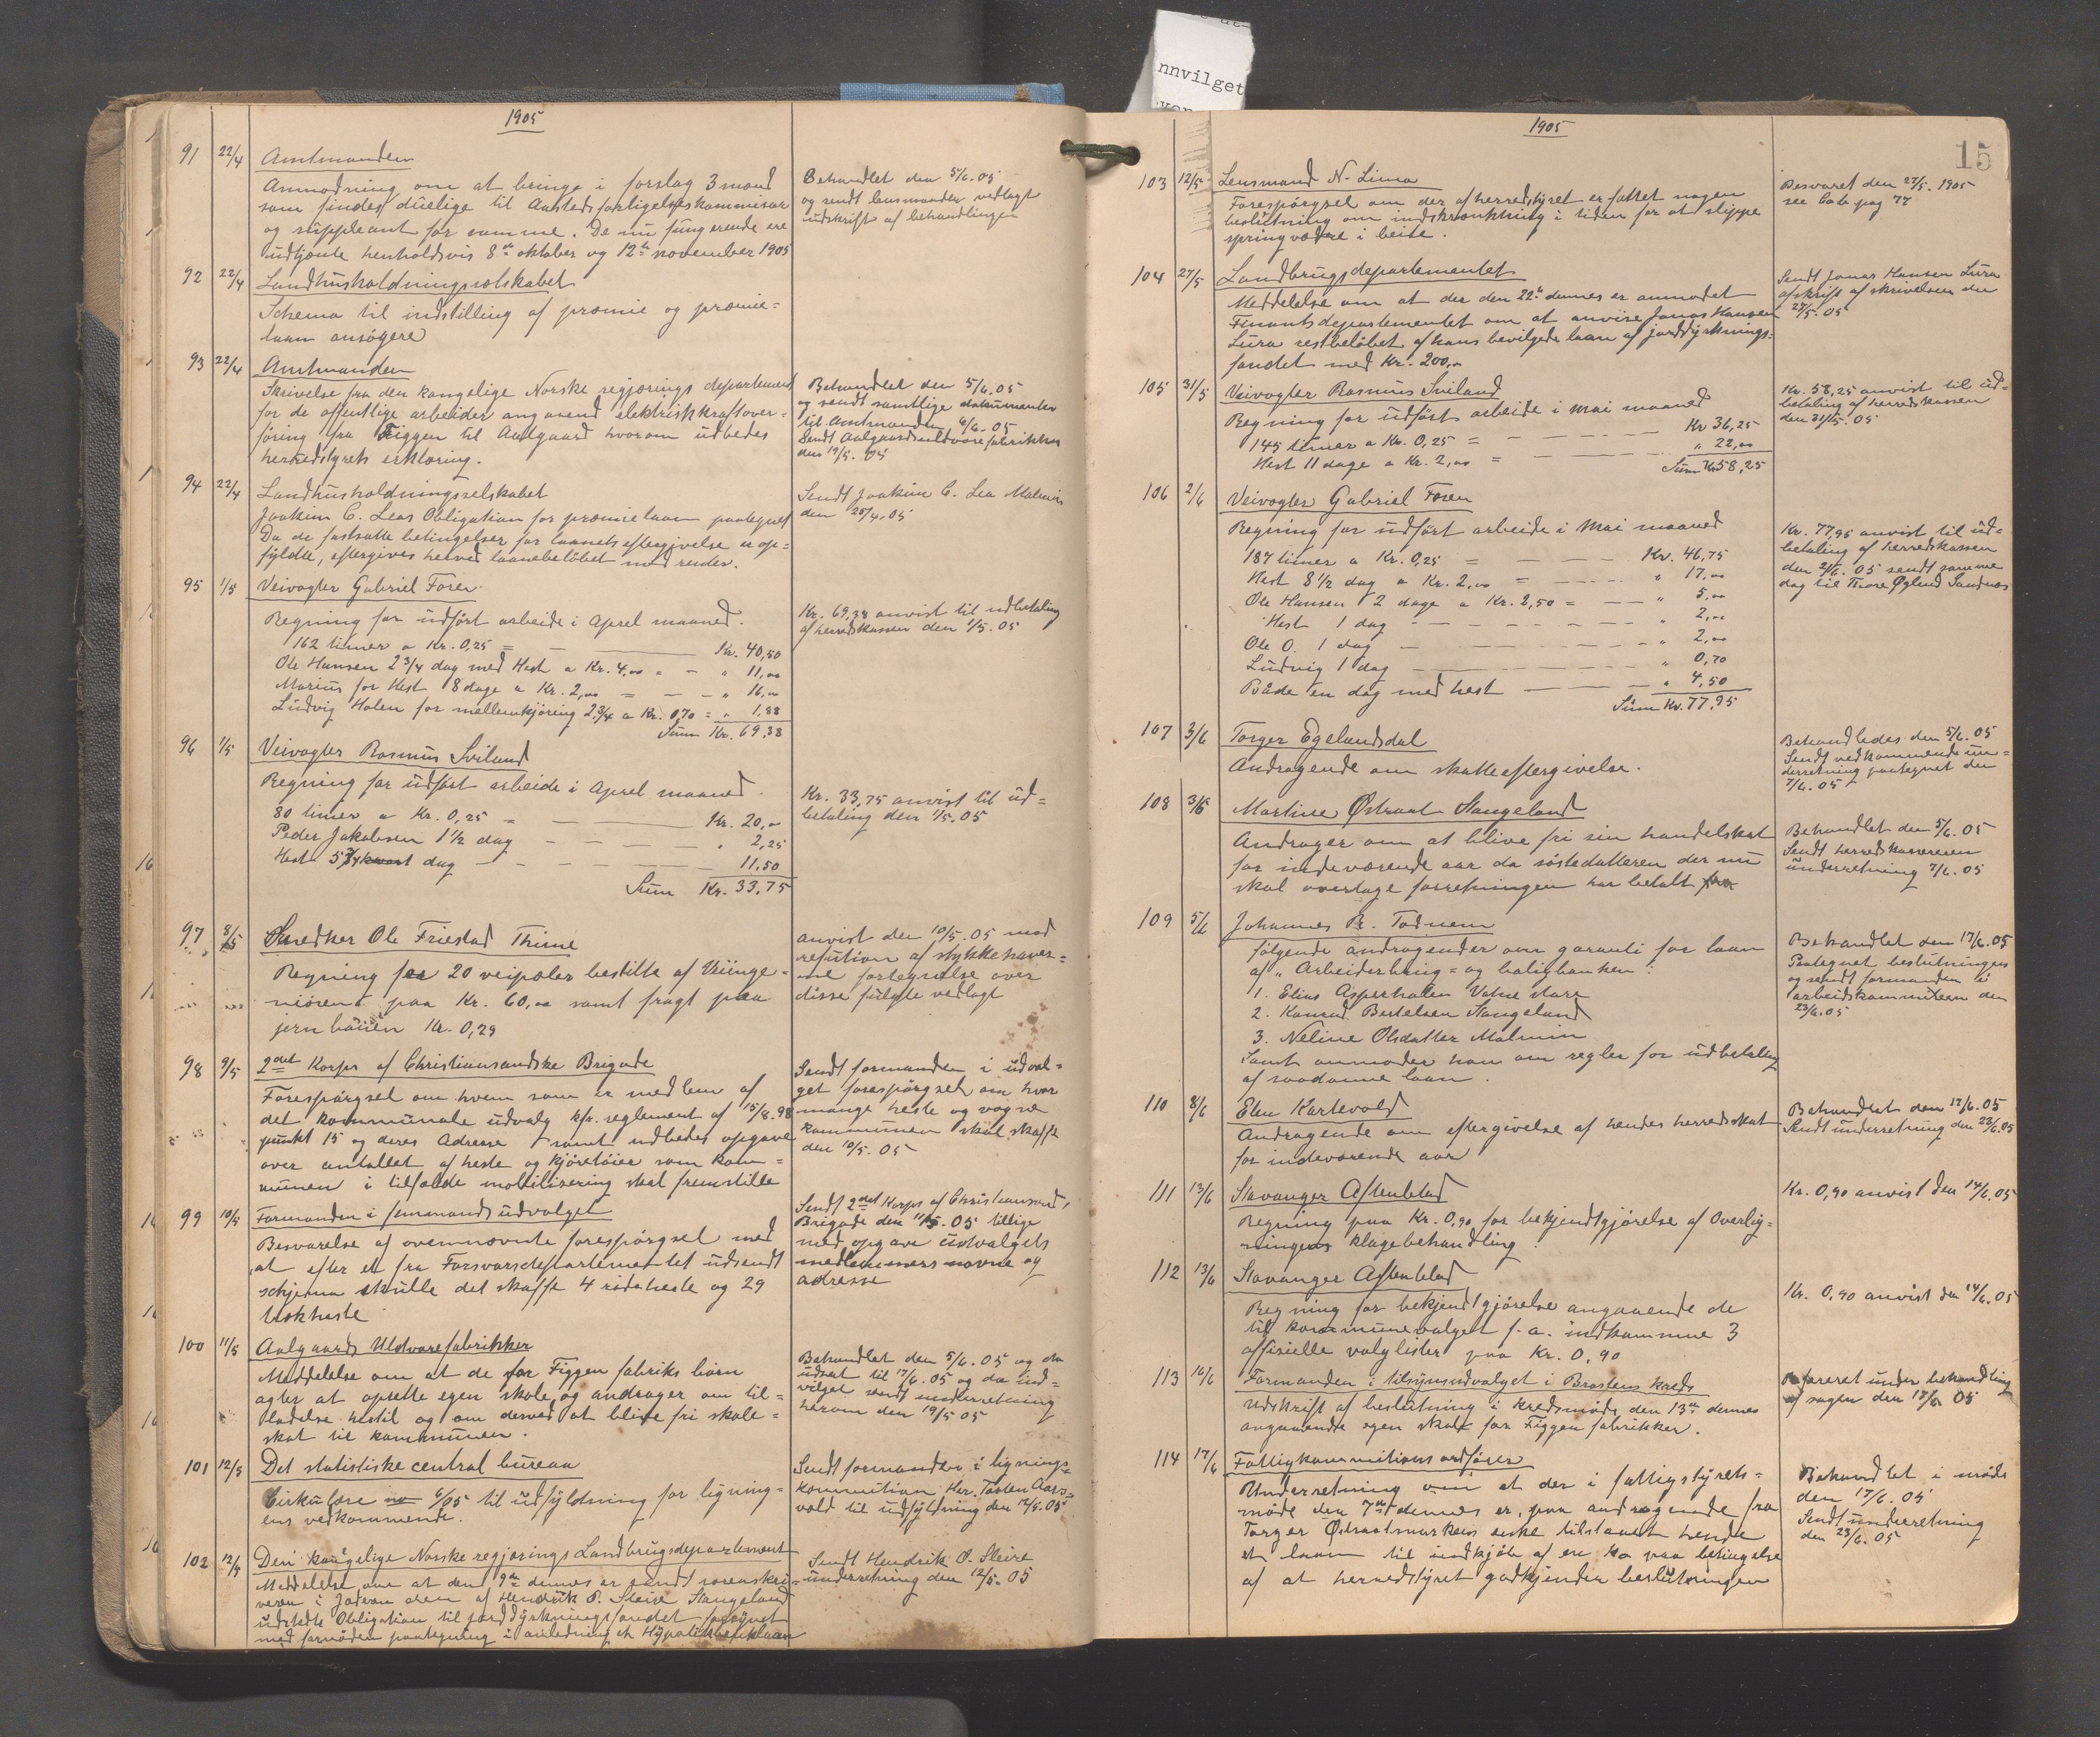 1905
91 22/4 Amtmanden
Anmodning om at bringe i forslag 3 mænd
som findes duelige til Aastedsfortigelseskommisær
og suppleant for samme. De nu fungerende ere
udtjente henholdsvis 8de oktober og 12te november 1905
Behandlet den 5/6. 05
og sendt lensmanden vedlagt
udskrift af behandlingen
92 22/4 Landhusholdningsselskabet
Schema til indstilling af præmie og præmie=
laan ansøgere
93 22/4 Amtmanden
Skrivelse fra den kongelige Norske regjerings departement
for de offentlige arbeider angaaend elektriskkraftover=
føring fra Figgen til Aalgaard hvorom udbedes
herredstyrets erklæring.
Behandlet den 5/6. 05
og sendt samtlige dokumenter
til Amtmanden 6/6. 05
Sendt Aalgaards uldvarefabrikker
den 19/5. 05
94 22/4 Landhusholdningsselskabet
Joakim C. Leas Obligation for præmielaan paategnet
Da de fastsatte betingelser for laanets eftergivelse er op=
fyldte, eftergives herved laanebeløbet med renter.
Sendt Joakim C. Lea Malmin
den 25/4. 05
95 1/5 Veivogter Gabriel Foren
Regning for udført arbeide i Aprel maaned.
162 timer a Kr. 0,25 = Kr. 40,50
Ole Hansen 2 3/4 dag med Hest a Kr. 4,00 = " 11,00
Marius for Hest 8 dage a Kr. 2,00 = " 16,00
Ludvig Holen for mellemkjøring 2 3/4 a Kr. 0,70 = " 1,88
Sum Kr. 69,38
Kr. 69,38 anvist til udbetaling
af herredskassen den 1/5. 05
96 1/5 Veivogter Rasmus Sviland
Regning for udført arbeide i Aprel maaned.
80 timer a Kr. 0,25 = Kr. 20,00
Peder Jakobsen 1 1/2 dag " 2,25
Hest 5 3/4 dag 11,50
Sum Kr. 33,75
Kr. 33,75 anvist til ud=
betaling den 1/5. 05
97 8/5 Snedker Ole Friestad Thime
Regning for 20 veipæler bestilt af Veiinge=
niøren paa Kr. 60,00 samt fragt paa
jernbanen Kr. 0,29
anvist den 10/5. 05 mod
refution af stykkehaver=
ne fortegnelse over
disse fulgte vedlagt
98 9/5 2det Korps af Christiansandske Brigade
Forespørgsel om hvem som er medlem af
det kommunale udvalg kfr. reglement af 15/8. 98
punkt 15 og deres Adresse samt udbedes opgave
over antallet af heste og kjøretøier som kom=
munen i tilfælde mobilisering skal fremstille
Sendt formanden i udval=
get forespørgsel om hvor
mange heste og vogne
kommunen skal skaffe
den 10/5. 05
99 10/5 Formanden i femmands udvalget
Besvarelse af ovennævnte forespørgsel med
at efter et fra Forsvarsdepartementet udsendt
schjema skulle det skaffe 4 rideheste og 29
Sendt 2det Korps af Christiansands
Brigade den 11/5. 05 tillige
med opgave udvalgets
medlemmers navne og
adresse
100 11/5 Aalgaards Uldvarefabrikker
Meddelelse om at de for Figgen fabriks børn
agter at oprette egen skole og andrager om til=
ladelse hertil og om derved at blive fri skole=
skat til kommunen.
Behandlet den 5/6. 05 og da
udsat til 17/6. 05 og da ind=
vilget sendt underretning
herom den 19/5 05
101 12/5 Det statistiske central bureau
Cirkulære no 6/05 til udfyldning for ligning=
ens vedkommende.
Sendt formanden i lignings=
kommission Her. Tosten Aars=
vold til udfyldning den 12/5. 05
102 12/5 Den kongelige Norske regjerings Landbrugsdepartement
Meddelelse om at den 9de dennes er sendt sorenskri=
veren i Jæderen den af Hendrik O. Skeire Stangeland
udstedte Obligation til jorddyrkningsfondet forsynet
med fornøden paategning i anledning et Hypotekbanklaan
Sendt Hendrik O. Skeire
underretning den 12/5. 05
nnvilget
1905
15
103 12/5 Lensmand N. Lima
Forespørgsel om der af herredstyret er fattet nogen
beslutning om indskrænkning i tiden for at slippe
springvædre i beite.
Besvaret den 27/5. 1905
see Cob pag 77
104 27/5 Landbrugsdepartementet
Meddelelse om at der den 22de dennes er anmodet
Finantsdepartementet om at anvise Jonas Hansen
Lura restbeløbet af hans bevilgede laan af jorddyrknings=
fondet med Kr. 200,00
Sendt Jonas Hansen Lura
afskrift af skrivelsen den
27/5. 05
105 31/5 Veivogter Rasmus Sviland
Regning for udført arbeide i Mai maaned
145 timer a Kr. 0,25 = Kr 36,25
Hest 11 dage a Kr. 2,00 = " 22,00
Sum Kr 58,25
Kr. 58,25 anvist til ud=
betaling af herredskassen
den 31/5. 05
106 2/6 Veivogter Gabriel Foren
Regning for udført arbeide i Mai maaned
187 timer a Kr. 0,25 = Kr. 46,75
Hest 8 1/2 dag a Kr. 2,00 = " 17,00
Ole Hansen 2 dage a Kr. 2,50 = " 5,00
Hest 1 dag " 2,00
Ole O. 1 dag " 2,00
Ludvig 1 dag " 0,70
Både en dag med hest " 4,50
Sum Kr. 77,95
Kr. 77,95 anvist til ud=
betaling af herredskassen
den 2/6. 05 sendt samme
dag til Thore Øglend Sandnes
107 3/6 Torger Egelandsdal
Andragende om skatteeftergivelse.
Behandledes den 5/6. 05
Sendt vedkommende un=
derretning paategnet den
7/6. 05
108 3/6 Martine Østraat Stangeland
Andrager om at blive fri sin handelskat
for indeværende aar da søstedatteren der nu
skal overtage forretningen har betalt
Behandlet den 5/6. 05
Sendt herredskassereren
underretning 7/6. 05
109 5/6 Johannes R. Todnem
følgende andragender om garanti for laan
af "Arbeiderbrug= og boligbanken:
1. Elias Asperholen Vatne
2. Konrad Bertelsen Stangeland
3. Neline Olsdatter Malmin
Samt anmoder han om regler for udbetaling
af saadanne laan.
Behandlet den 17/6. 05
Paategnet beslutningen
og sendt formanden i
arbeidskommiteen den
23/6. 05
110 8/6 Elen Kartevold
Andragende om eftergivelse af hendes herredsskat
for indeværende aar
Behandlet den 17/6. 05
Sendt underretning den 23/6. 05
111 13/6 Stavanger Aftenblad
Regning paa Kr. 0,90 for bekjendtgjørelse af Overlig=
ningens klagebehandling.
Kr. 0,90 anvist den 14/6. 05
112 13/6 Stavanger Aftenblad
Regning for bekjendtgjørelse angaaende de
til kommunevalget f. a. indkomne 3
officielle valglister paa Kr. 0,90
Kr. 0,90 anvist den 14/6. 05
113 16/6 Formanden i tilsynsudvalget i Brastens kreds
Udskrift af beslutning i kredsmøde den 13de dennes
angaaende egen skole for Figgen fabrikker.
Refereret under behandling
af sagen den 17/6 05
114 17/6 Fattigkommitions ordfører
Underretning om at der i fattigstyrets=
møde den 7de dennes er, paa andragende fra
Torger Østraatmarkens enke tilstaaet hende
et laan til indkjøb af en ko paa betingelse
af at herredstyret godkjender beslutningen
Behandlet i møde
den 17/6. 05
Sendt underretning
den 23/6. 05